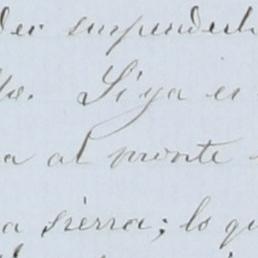 der suspendeh
lo. Si ya es
a al monte
a sierra; lo qu